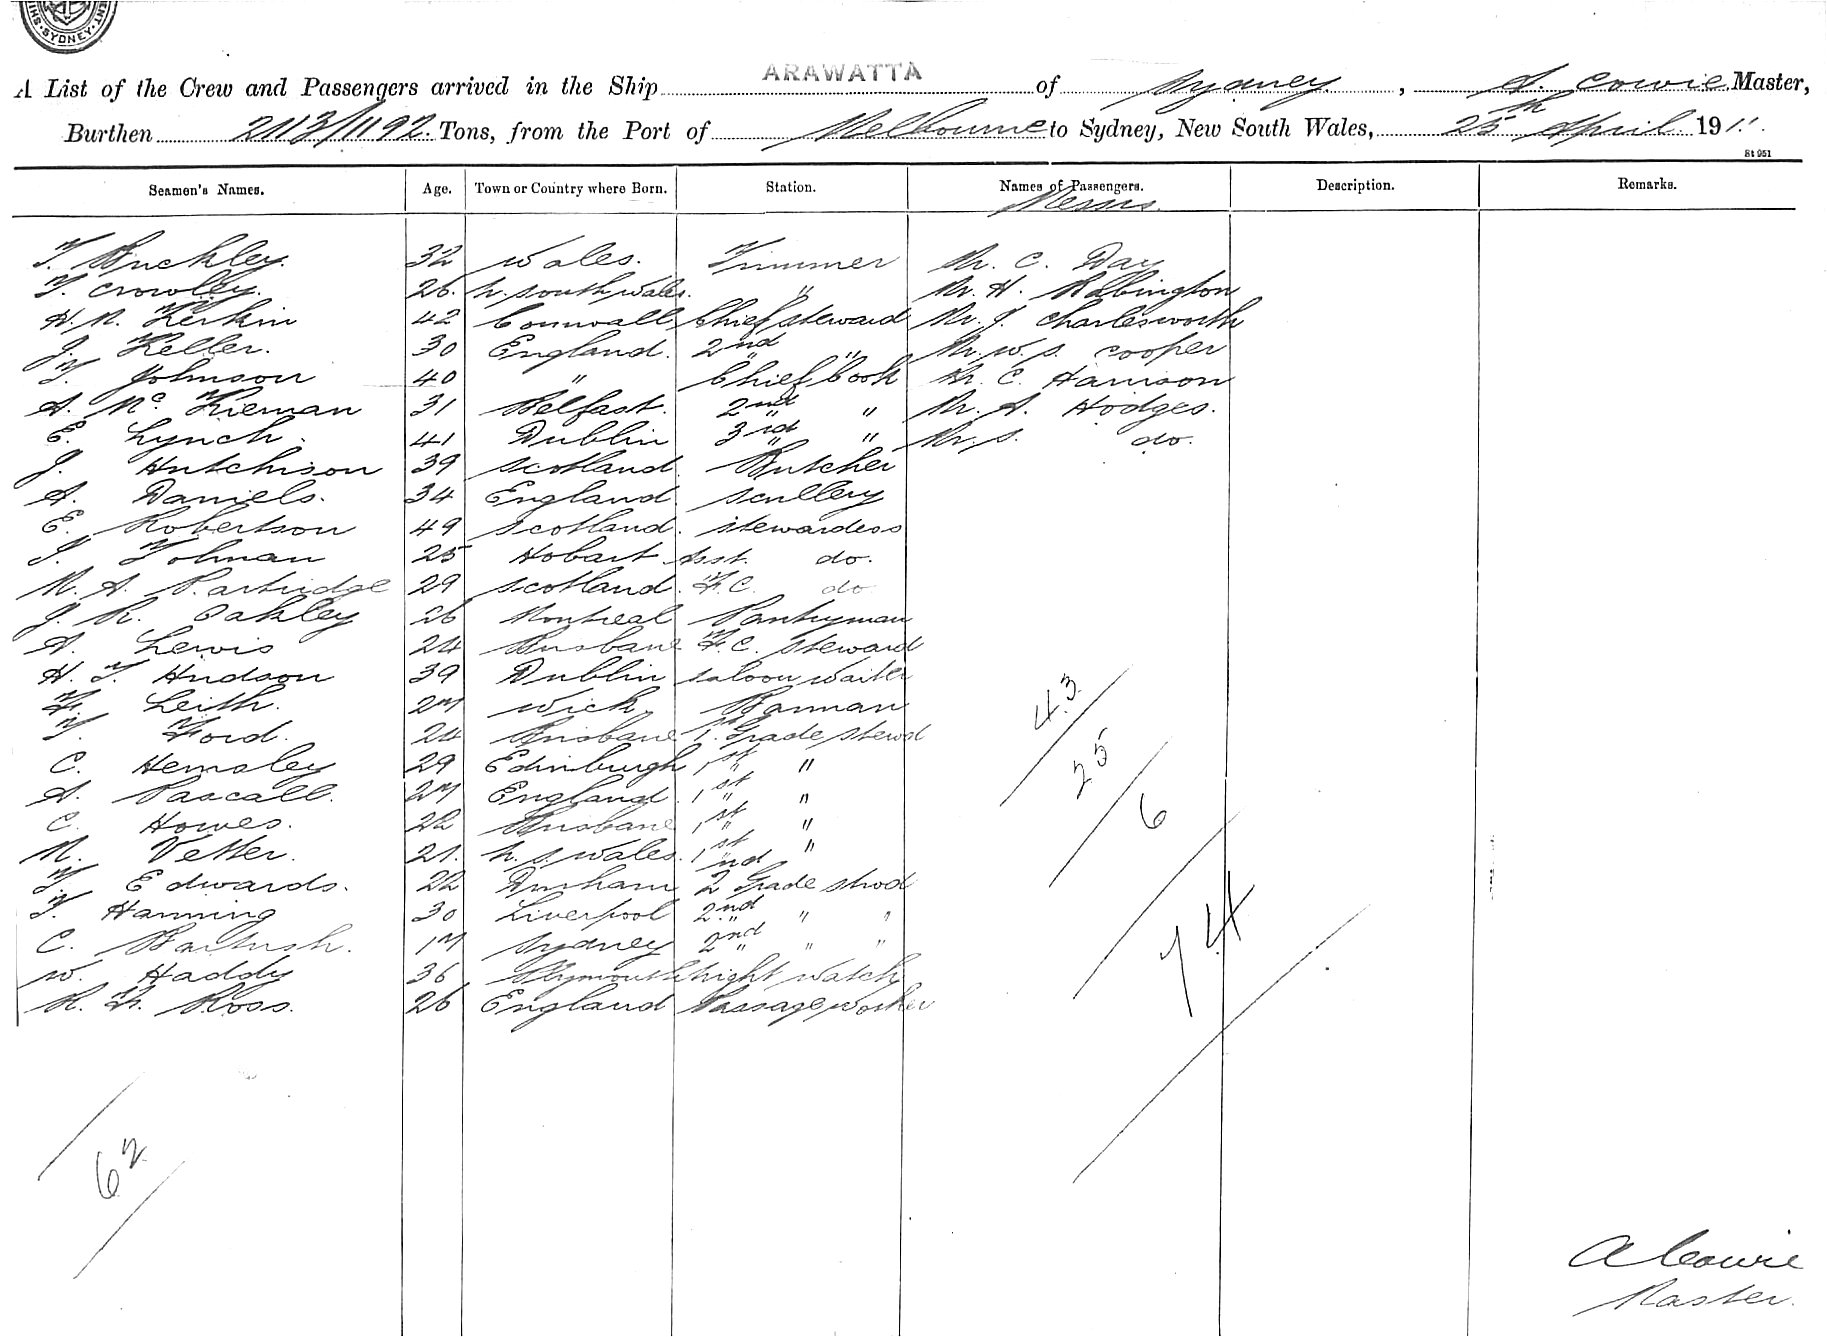 SYDNEY
A List of the Crew and Passengers arrived in the Ship ARAWATTA of Sydney, A. Cowie Master,
Burthen 2113/1192 Tons, from the Port of Melbourne to Sydney, New South Wales, 25th April 1911.
St 951
Seamen's Names. Age. Town or Country where Born. Station. Names of Passengers. Description. Remarks.
T. Buckley. 32 Wales. Trimmer Mr. C. Day
T. Crowley. 26. N. South Wales. " Mr. H. Babington
H. M. Kerkin 42 Cornwall Chief Steward Mr. J. Charlesworth
J. Keller. 30 England. 2nd " Mr. W. S. Cooper
T. Johnson 40 " Chief Cook Mr. C. Harrison
A. McKiernan 31 Belfast. 2nd " Mr. A. Hodges.
E. Lynch. 41 Dublin 3rd " Mr. S. do.
J. Hutchison 39 Scotland. Butcher
A. Daniels. 34 England Scullery
E. Robertson 49 Scotland. Stewardess
I. Tolman 25 Hobart Asst. do.
M. A. Partridge 29 Scotland. F.C. do
J. R. Oakley 26 Montreal Pantryman
A. Lewis 24 Brisbane F.C. Steward
H. T. Hudson 39 Dublin Saloon Waiter
F. Leith. 27 Wick Barman
T. Ford. 24 Brisbane 1st Grade Stewd
C. Hemsley 29 Edinburgh 1st " "
A. Pascall. 27 England 1st " "
C. Howes. 22 Brisbane 1st " "
M. Vetter. 21. N. S. Wales. 1st " "
T. Edwards. 22 Durham 2nd Grade Stwd
T. Hanning 30 Liverpool 2nd " "
C. 17 Sydney 2nd " " "
W. Haddy 36 Plymouth Night Watch
R. F. Ross. 26 England Passage Worker
43
25
6
74
62
A Cowie
Master.